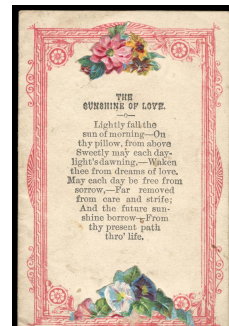 THE
SUNSHINE OF LOVE.
Lightly fall the
sun of morning—On
thy pillow, from above
Sweetly may each day-
light's dawning,—Waken
thee from dreams of love.
May each day be free from
sorrow,—Far removed
from care and strife;
And the future sun-
shine borrow—From
thy present path
thro' life.